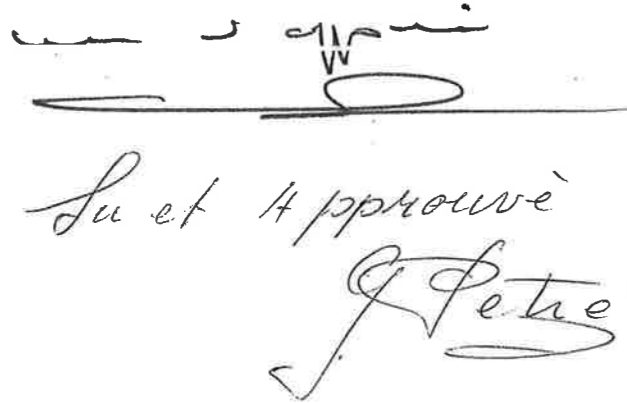 Lu et Approuvè
J Petre